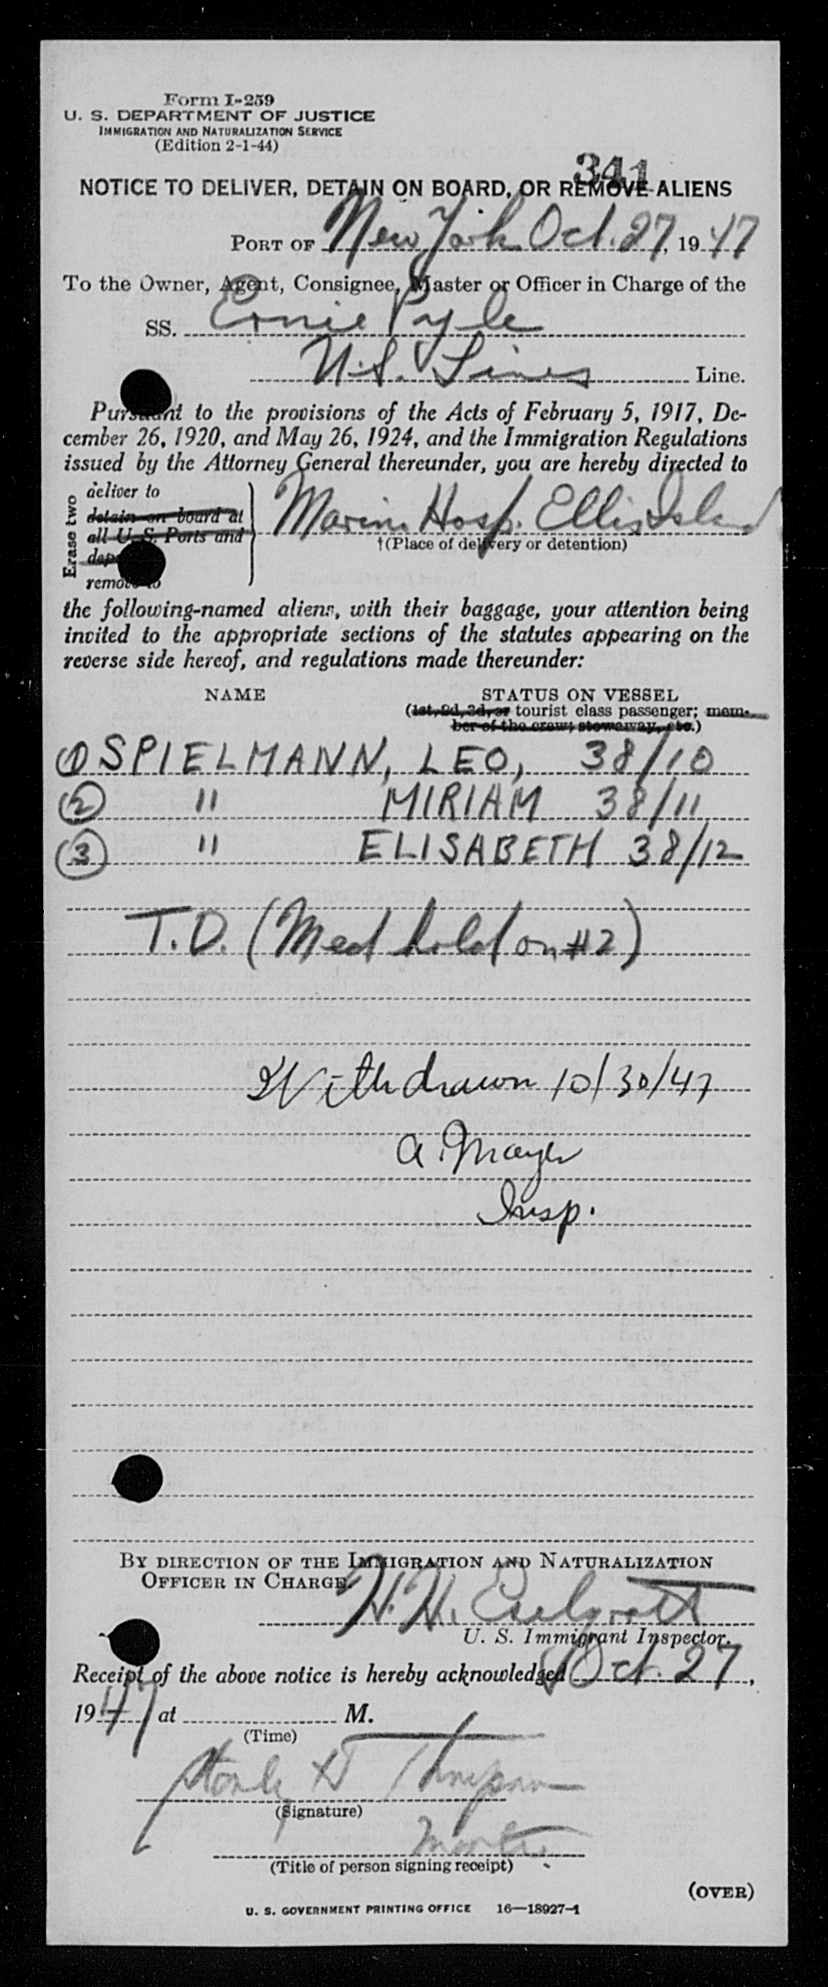 Form I-259
U. S. DEPARTMENT OF JUSTICE
IMMIGRATION AND NATURALIZATION SERVICE
(Edition 2-1-44)
341
NOTICE TO DELIVER, DETAIN ON BOARD, OR REMOVE ALIENS
PORT OF New York Oct. 27, 1947
To the Owner, Agent, Consignee, Master or Officer in Charge of the
SS. Ernie Pyle
U.S. Lines Line.
Pursuant to the provisions of the Acts of February 5, 1917, De-
cember 26, 1920, and May 26, 1924, and the Immigration Regulations
issued by the Attorney General thereunder, you are hereby directed to
Erase two
deliver to
detain on board at
all U. S. Ports and
remove to
Marine Hosp. Ellis Island
†(Place of delivery or detention)
the following-named aliens, with their baggage, your attention being
invited to the appropriate sections of the statutes appearing on the
reverse side hereof, and regulations made thereunder:
NAME STATUS ON VESSEL
(1st, 2d, 3d, or tourist class passenger; mem-
ber of the crew; stowaway, etc.)
① SPIELMANN, LEO, 38/10
② " MIRIAM 38/11
③ " ELISABETH 38/12
T.D. (Med hold on #2)
Withdrawn 10/30/47
A. Mayer
Insp.
BY DIRECTION OF THE IMMIGRATION AND NATURALIZATION
OFFICER IN CHARGE
H. H.
U. S. Immigrant Inspector.
Receipt of the above notice is hereby acknowledged Oct. 27,
1947 at M.
(Time)
(Signature)
(Title of person signing receipt)
(OVER)
U. S. GOVERNMENT PRINTING OFFICE 16—18927-1